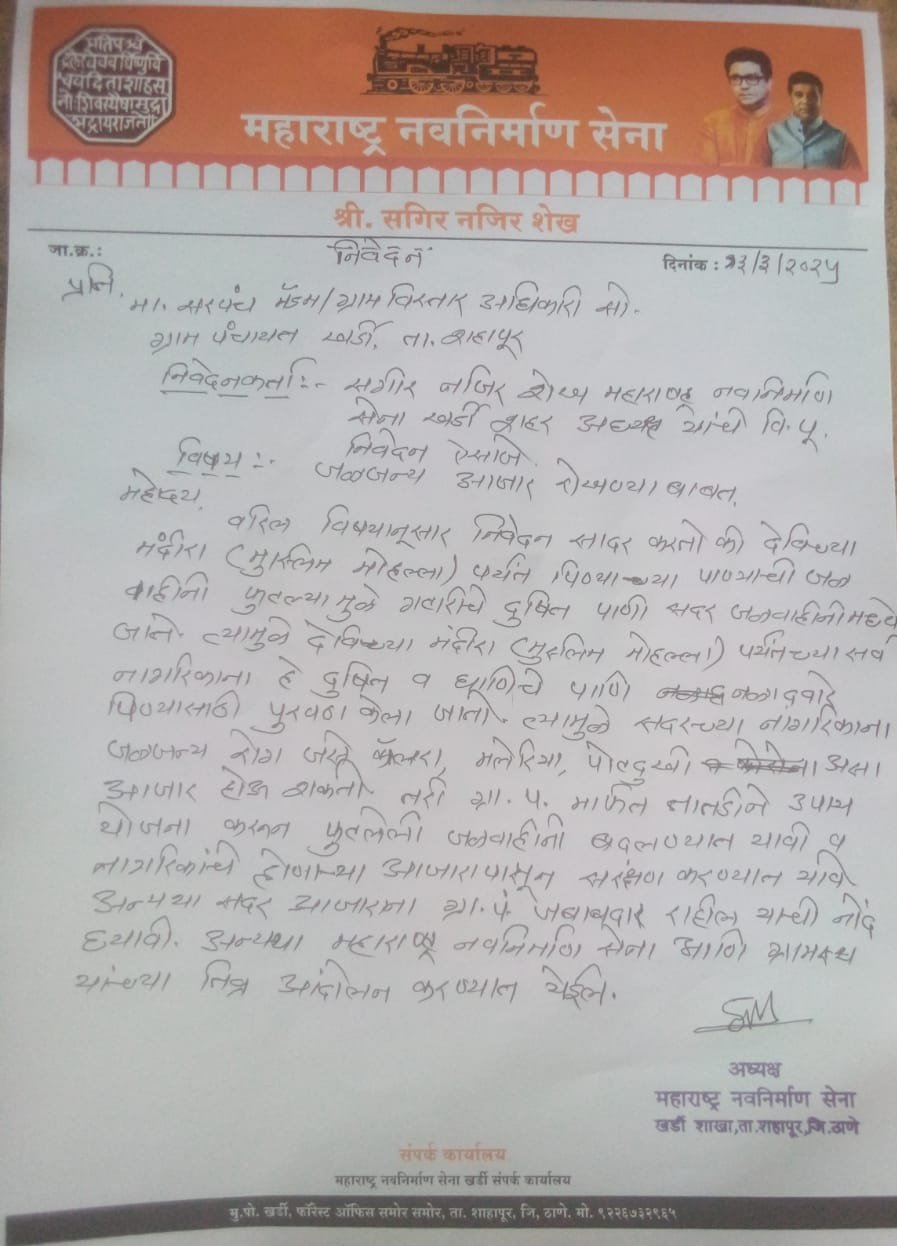 प्रतिपच्चं
द्रलेखेव वर्धिष्णुर्वि
श्ववंदिता शाहसू
नोः शिवस्यैषा मुद्रा
भद्राय राजते
महाराष्ट्र नवनिर्माण सेना
श्री. सगिर नजिर शेख
जा.क्र.:
निवेदन
दिनांक : १३/३/२०२५
प्रति,
मा. सरपंच मॅडम/ग्राम विस्तार अधिकारी सो.
ग्राम पंचायत खर्डी, ता. शहापूर
निवेदनकर्ता :- सगीर नजिर शेख महाराष्ट्र नवनिर्माण
सेना खर्डी शहर अध्यक्ष यांचे वि. पू.
निवेदन ऐसाजे.
विषय :- जळजन्य आजार रोखण्या बाबत.
महोदय,
वरिल विषयानूसार निवेदन सादर करतो की देविच्या
मंदीरा (मुस्लिम मोहल्ला) पर्यंत पिण्याच्या पाण्याची जल
वाहीनी फुटल्यामुळे गटारीचे दुषित पाणी सदर जलवाहीनीमध्ये
जाते. त्यामुळे देविच्या मंदीरा (मुस्लिम मोहल्ला) पर्यंतच्या सर्व
नागरिकाना हे दुषित व घाणिचे पाणि नळाद्वारे
पिण्यासाठी पुरवठा केला जातो. त्यामुळे सदरच्या नागरिकाना
जळजन्य रोग जसे कॅालरा, मलेरिया, पोटदुखी अशा
आजार होऊ शकतो. तरी ग्रा. पं. मार्फत तातडीने उपाय
योजना करून फुटलेली जलवाहीनी बदलण्यात यावी व
नागरिकांचे होणाऱ्या आजारापासून संरक्षण करण्यात यावे
अन्यथा सदर आजारना ग्रा.पं. जबाबदार राहील यांची नोंद
घ्यावी. अन्यथा महाराष्ट्र नवनिर्माण सेना आणि ग्रामस्थ
यांच्या तिव्र आंदोलन करण्यात येईल.
अध्यक्ष
महाराष्ट्र नवनिर्माण सेना
खर्डी शाखा,ता.शहापूर,जि.ठाणे
संपर्क कार्यालय
महाराष्ट्र नवनिर्माण सेना खर्डी संपर्क कार्यालय
मु.पो. खर्डी, फॉरेस्ट ऑफिस समोर समोर, ता. शाहापूर, जि, ठाणे. मो. ९२२६७३२९६५